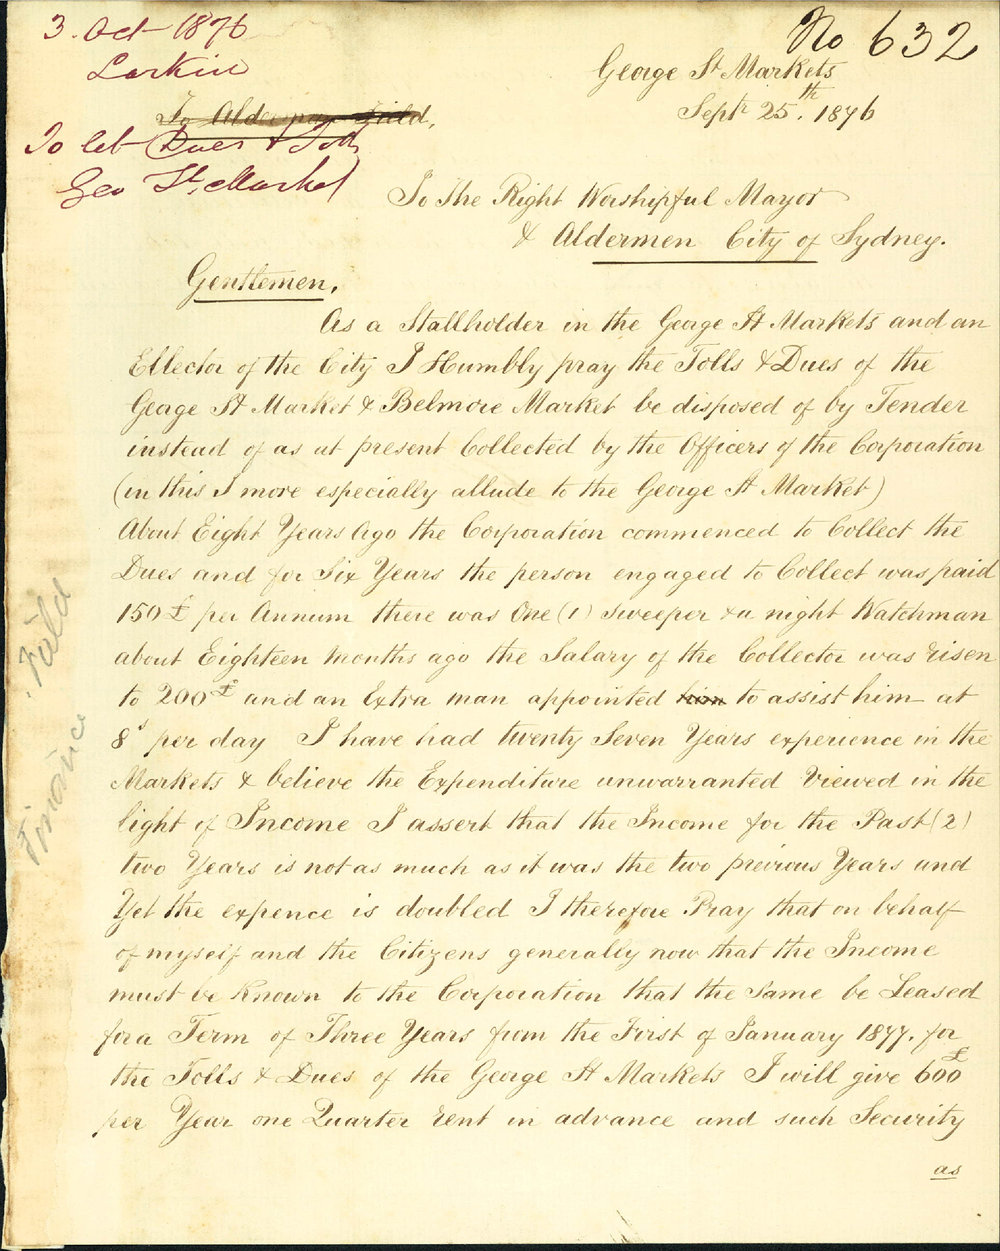 3. Oct 1876
Larkin
No 632
George St Markets
Septr 25th. 1876
To Alderman Field,
To let Dues & Tolls
Geo St. Market
To The Right Worshipful Mayor
& Aldermen City of Sydney.
Gentlemen,
As a Stallholder in the George St Markets and an
Ellector of the City I Humbly pray the Tolls & Dues of the
George St Market & Belmore Market be disposed of by Tender
instead of as at present Collected by the Officers of the Corporation
(in this I more especially allude to the George St Market)
About Eight Years Ago the Corporation commenced to Collect the
Dues and for Six Years the person engaged to Collect was paid
150£ per Annum there was One (1) Sweeper & a night Watchman
about Eighteen months ago the Salary of the Collector was risen
to 200£ and an Extra man appointed him to assist him at
8s per day I have had twenty Seven Years experience in the
Markets & believe the Expenditure unwarranted Viewed in the
light of Income I assert that the Income for the Past (2)
two Years is not as much as it was the two previous Years and
Yet the expence is doubled I therefore Pray that on behalf
of myself and the Citizens generally now that the Income
must be Known to the Corporation that the Same be Leased
for a Term of Three Years from the First of January 1877. for
the Tolls & Dues of the George St Markets I will give 600£
per Year one Quarter rent in advance and such Security
as
Finance . Field